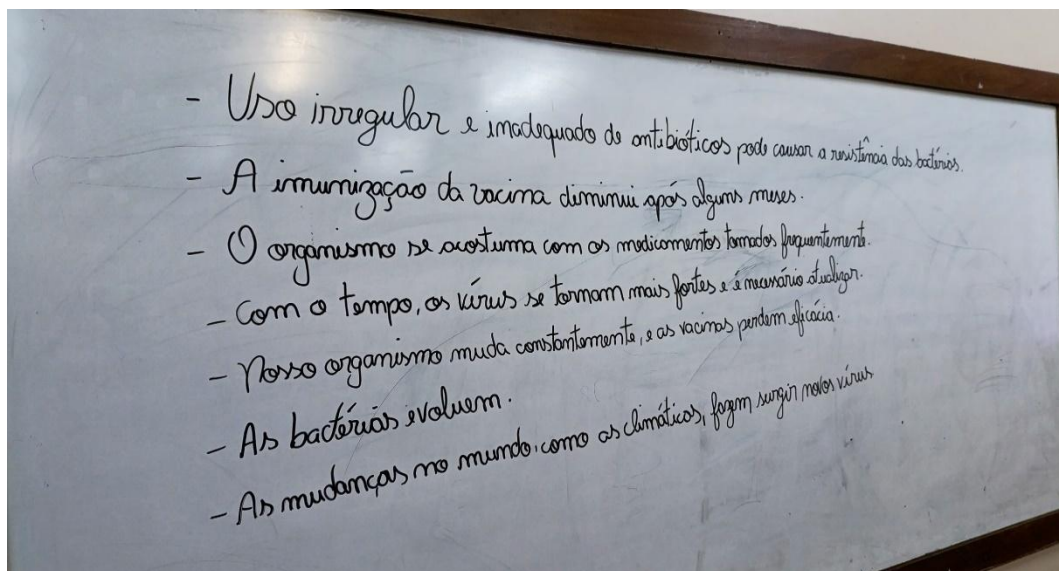 - Uso irregular e inadequado de antibióticos pode causar a resistência das bactérias.
- A imunização da vacina diminui após alguns meses.
- O organismo se acostuma com os medicamentos tomados frequentemente.
- Com o tempo, os vírus se tornam mais fortes e é necessário atualizar.
- Nosso organismo muda constantemente, e as vacinas perdem eficácia.
- As bactérias evoluem.
- As mudanças no mundo, como as climáticas, fazem surgir novos vírus